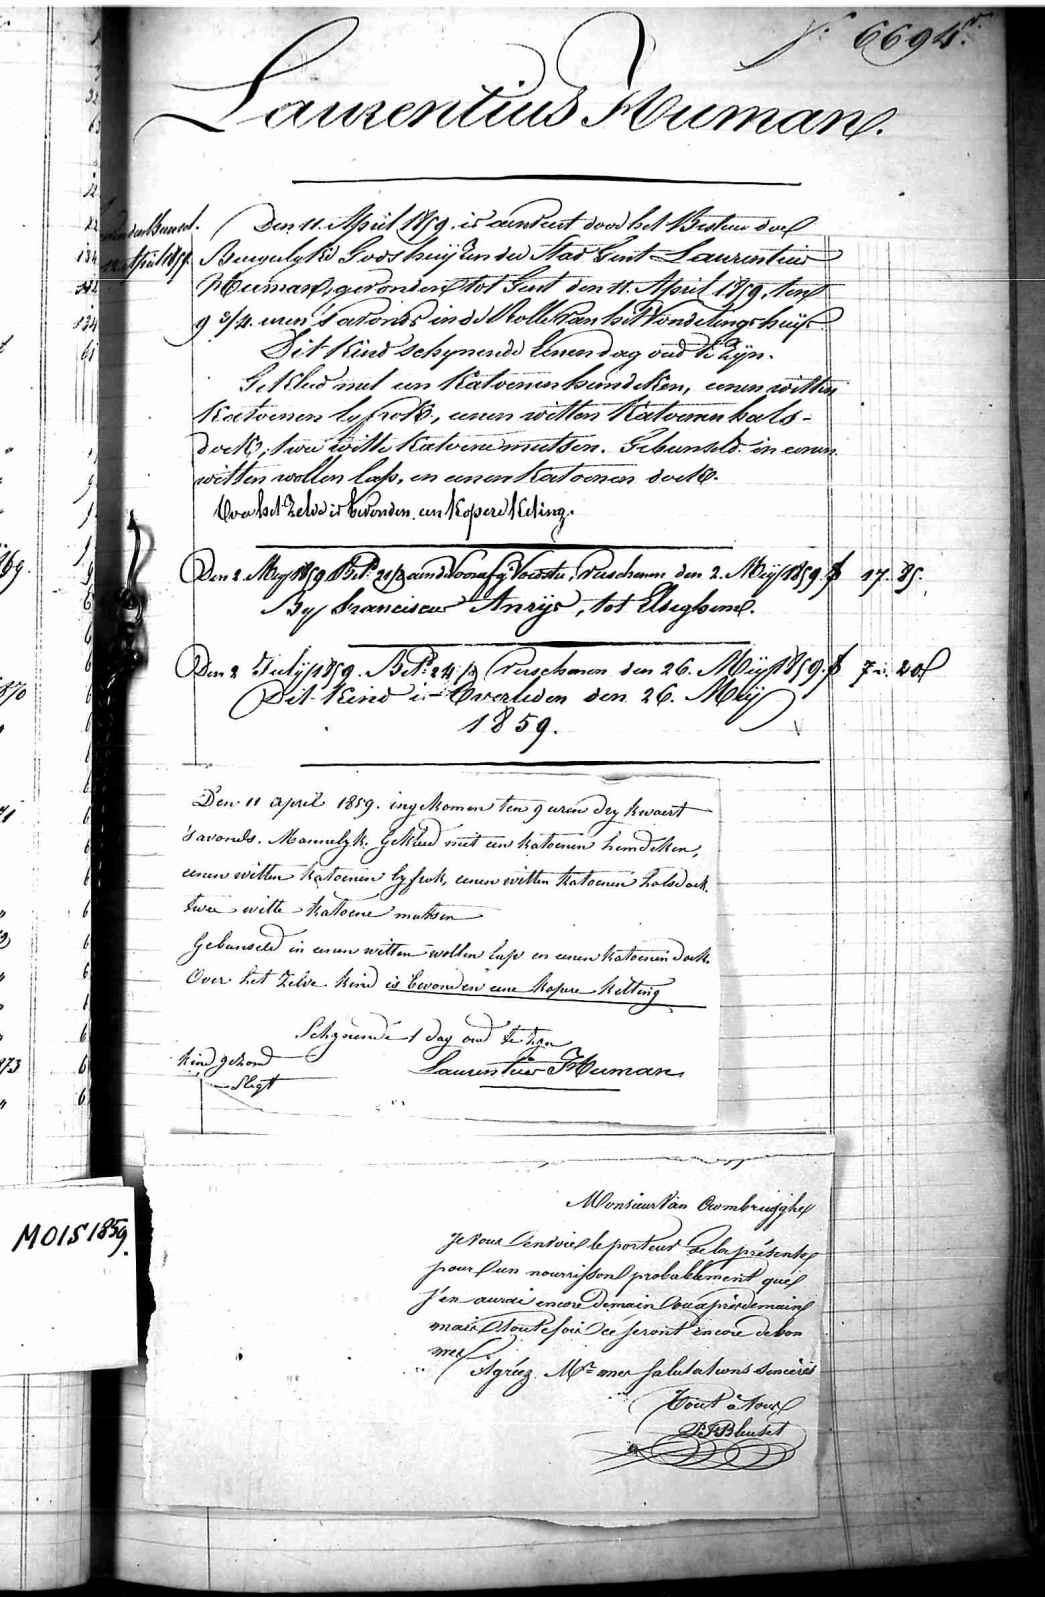 6694
Laurentius Human.
Den 11. April 1859. is aenveert door het Bestuer der
Burgerlyke Godshuyzen der Stad Gent Laurentius
Human, gevonden tot Gent den 11. April 1859, ten
9 3/4. uren 's avonds in de Rolle van het Vondelingshuys
Dit Kind schynende eenen dag oud te zyn.
Gekleed met een Katoenen hemdeken, eenen witten
Katoenen lyfrok, eenen witten Katoenen hals-
doek, twee witte Katoene mutsen. Gebunseld in eenen
witten wollen lap, en eenen Katoenen doek.
Over het Zelve is bevonden een Kopere Keting.
Den 2. Mey 1859 Verschenen den 2. Meij 1859. f 17. 85.
By Franciscus Anrijs, tot Elseghem.
Den 2 July 1859. Verschenen den 26. Meij 1859. f 7.
Dit Kind is Overleden den 26. Meij
1859.
Den 11 april 1859. ingekomen ten 9 uren dry kwaert
's avonds. Mannelyk. Gekleed met een katoenen hemdeken,
eenen witten katoenen lyfrok, eenen witten katoenen halsdoek
twee witte katoene mutsen
Gebunseld in eenen witten wollen lap en eenen katoenen doek.
Over het Zelve kind is bevonden eene kopere ketting
Schynende 1 dag oud te zyn
kind gezond
Slegt
Laurentius Human
MOIS 1859.
Monsieur Van Crombrugghe
Je vous envoie le porteur de la présente
pour un nourrisson probablement que
j'en aurai encore demain ou après demain
mais toutefois ce seront encore de bon
mer
Agréez Mr mes salutations sincères
Tout à vous